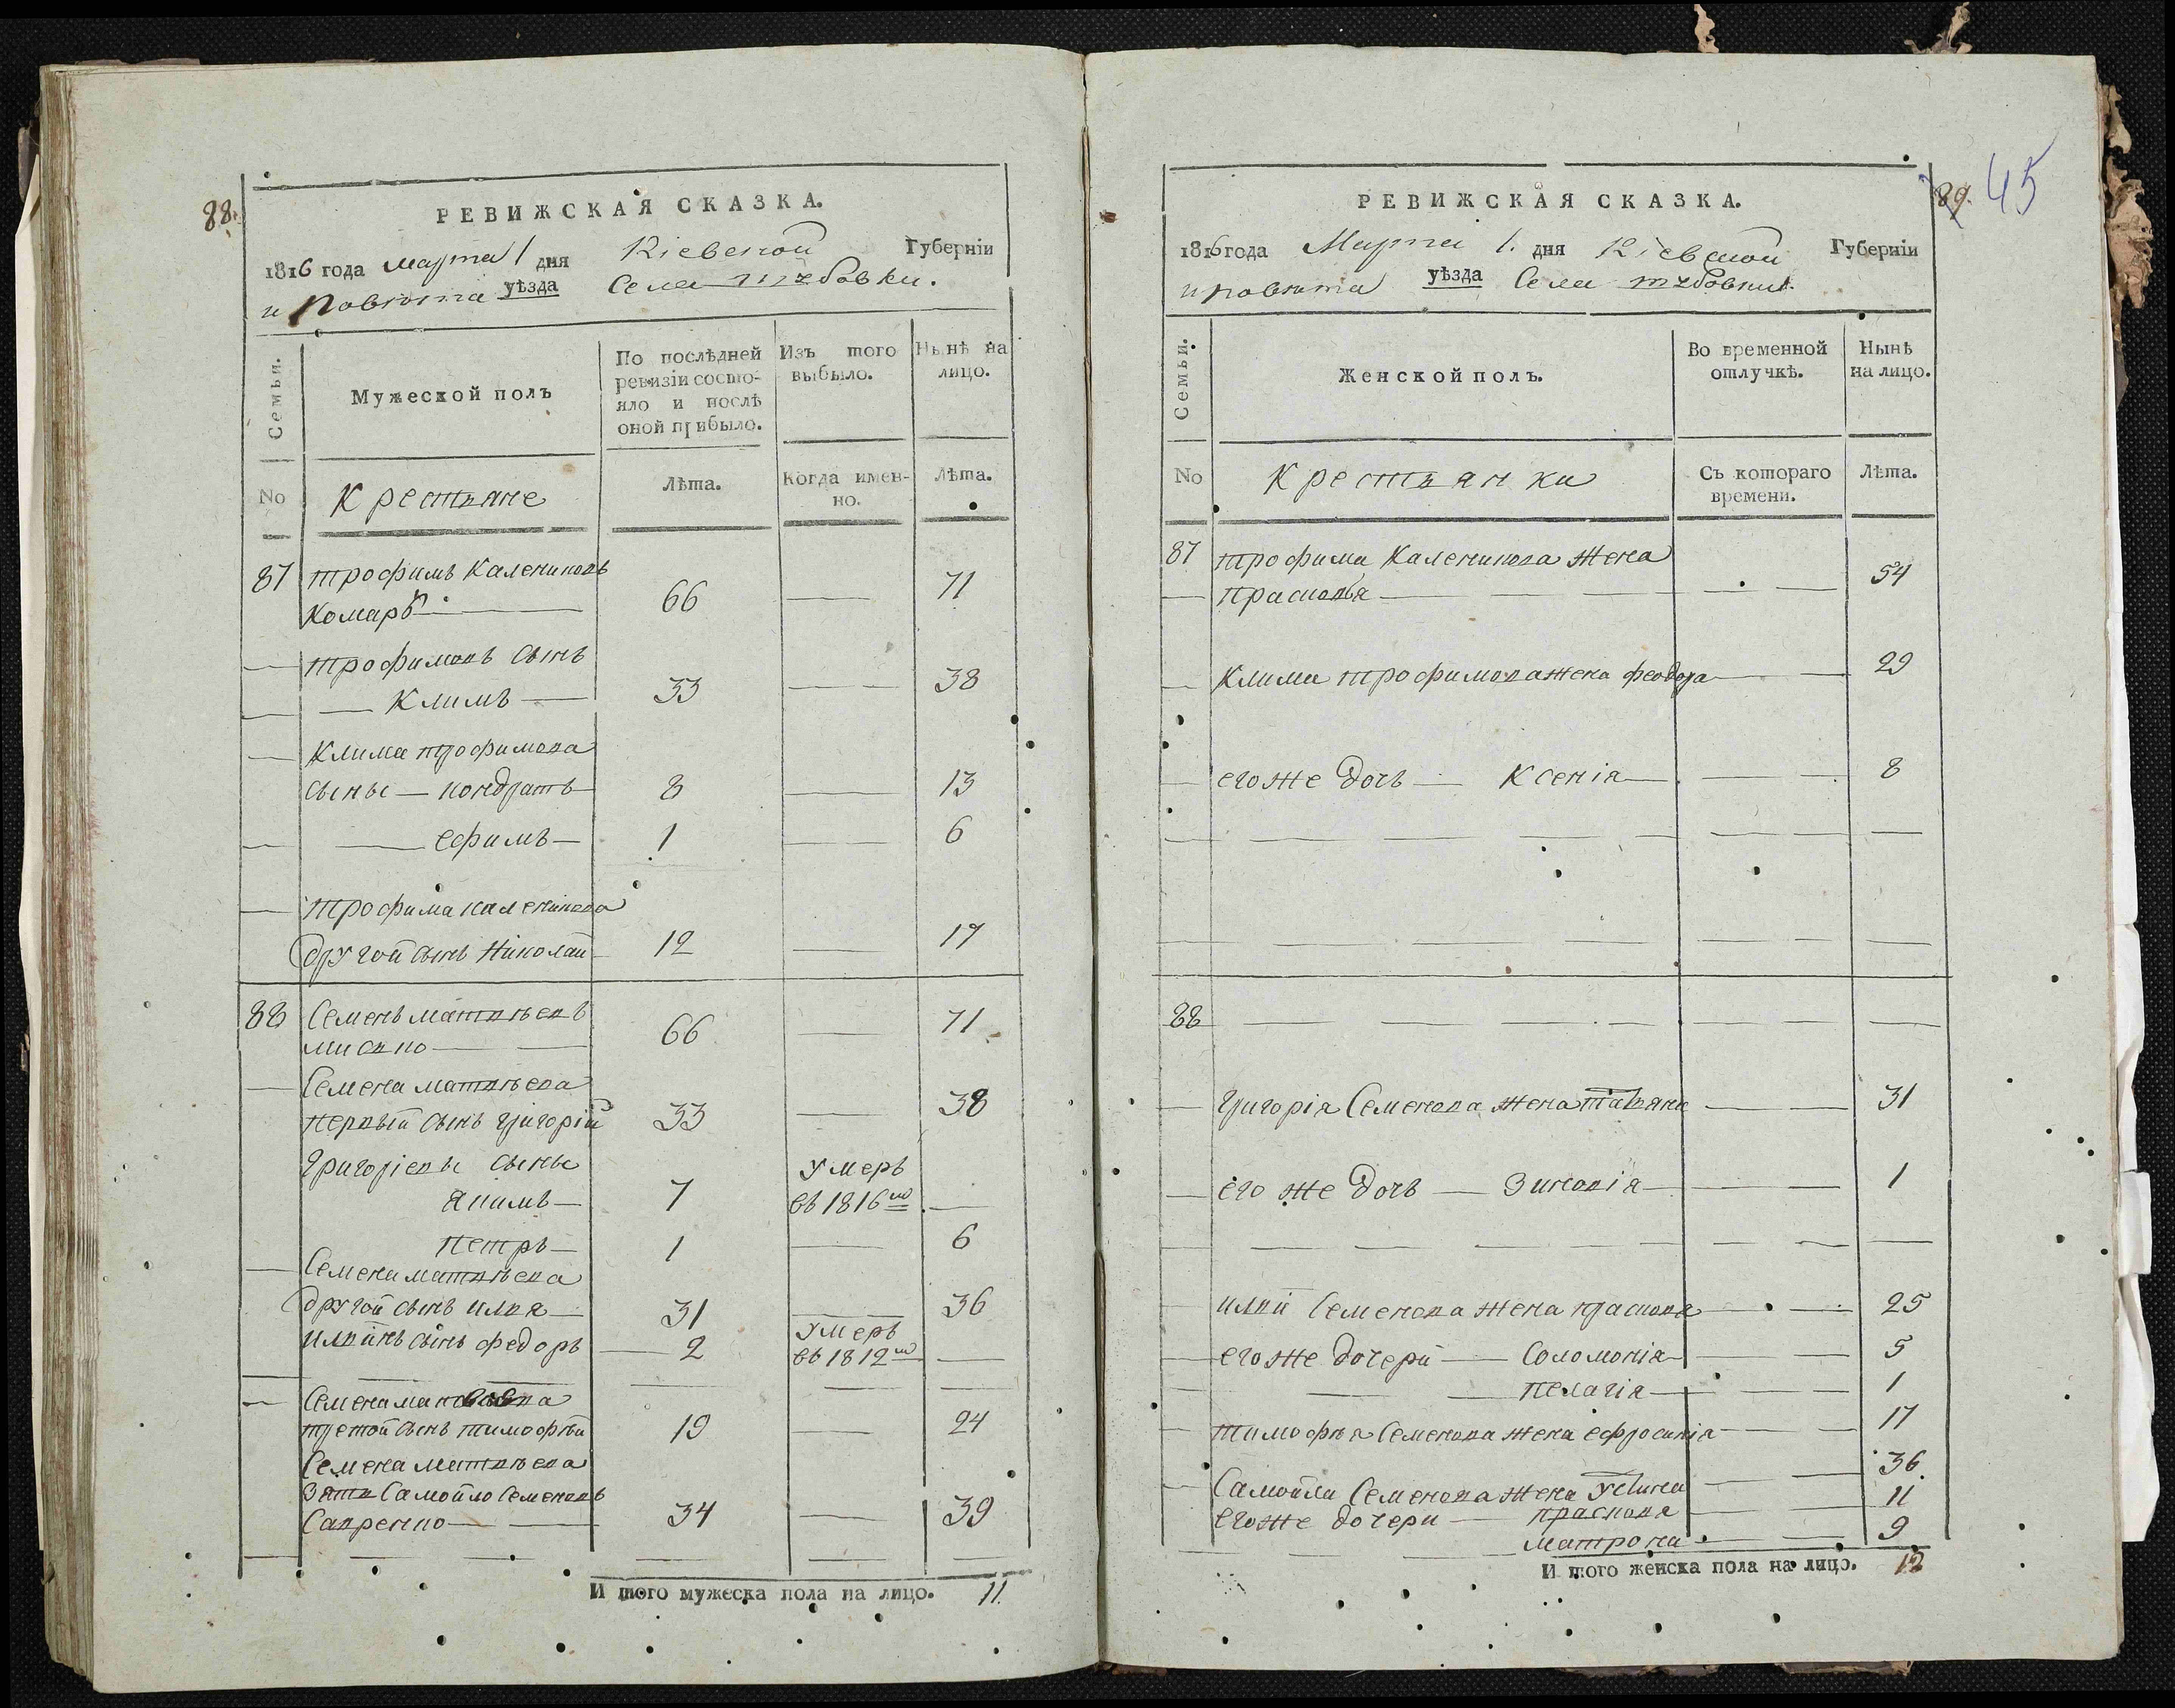 88.
РЕВИЖСКАЯ СКАЗКА.
1816 года марта 1 дня Кіевской Губерніи
и Повѣта уѣзда Села
Семьи.
Мужеской полъ
По послѣдней ревизіи состояло и послѣ оной прибыло.
Изъ того выбыло.
Нынѣ на лицо.
No
Крестьяне
Лѣта.
Когда именно.
Лѣта.
87 трофимъ Калениковъ
Комаръ — 66 — 71
— трофимовъ сынъ
— Климъ — 33 — 38
— Клима трофимова
сыны — кондратъ 8 — 13
— ефимъ — 1 — 6
— Трофима каленикова
другой сынъ Николай 12 — 17
88 Семенъ матвѣевъ
миско — 66 — 71
— Семена матвѣева
первый сынъ григорій 33 — 38
Григоріевы сыны умеръ
якимъ — 7 въ 1816мъ —
петръ — 1 — 6
— Семена матвѣева
другой сынъ илья — 31 — 36
ильинъ сынъ федоръ — 2 умеръ въ 1812мъ —
— Семена матвѣева
третой сынъ тимофѣй 19 — 24
Семена матвѣева
зять Самойло Семеновъ
Савренко — 34 — 39
И того мужеска пола на лицо. 11.
89. 45
РЕВИЖСКАЯ СКАЗКА.
1816 года Марта 1. дня Кіевской Губерніи
и повѣта уѣзда Села
Семьи.
Женской полъ.
Во временной отлучкѣ.
Нынѣ на лицо.
No
Крестьянки
Съ котораго времени.
Лѣта.
87 трофима Каленикова жена
— прасковья — 54
— Клима трофимова жена феодора — 29
— его же дочь — Ксенія — 8
88 —
— григорія Семенова жена татьяна — 31
— его же дочь — Зиновія — 1
— ильи Семенова жена прасковя — 25
— его же дочери — Соломонія — 5
— пелагія — 1
— тимофѣя Семенова жена ефросинія — 17
— Самойла Семенова жена Устина — 36
его же дочери — прасковя — 11
— матрона — 9
И того женска пола на лицо. 12